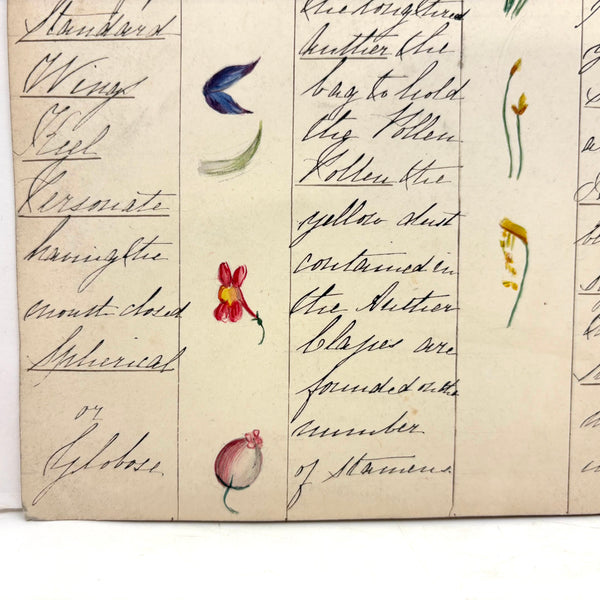 Standard
Wings
Keel
Personate
having the
mouth closed
Spherical
or
Globose
anther the
bag to hold
the Pollen
Pollen the
yellow dust
contained in
the Anther
Clases are
founded on the
number
of Stamens